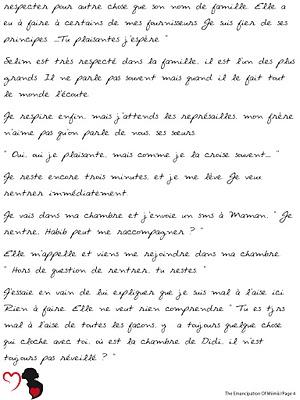 respecter pour autre chose que son nom de famille. Elle a
eu à faire à certains de mes fournisseurs. Je suis fier de ses
principes. _Tu plaisantes j'espère "
Selim est très respecté dans la famille, il est l'un des plus
grands. Il ne parle pas souvent mais quand il le fait tout
le monde l'écoute.
Je respire enfin, mais j'attends les représailles, mon frère
n'aime pas qu'on parle de nous, ses sœurs.
" Oui, oui je plaisante, mais comme je la croise souvent... "
Je reste encore trois minutes, et je me lève. Je veux
rentrer immédiatement.
Je vais dans ma chambre et j'envoie un sms à Maman, " Je
rentre, Habib peut me raccompagner ? "
Elle m'appelle et viens me rejoindre dans ma chambre.
" Hors de question de rentrer, tu restes. "
J'essaie en vain de lui expliquer que je suis mal à l'aise ici.
Rien à faire. Elle ne veut rien comprendre. " Tu es tjrs
mal à l'aise de toutes les façons, y a toujours quelque chose
qui cloche avec toi, où est la chambre de Didi, il n'est
toujours pas réveillé ? "
The Emancipation Of Mimi&#124; Page 4